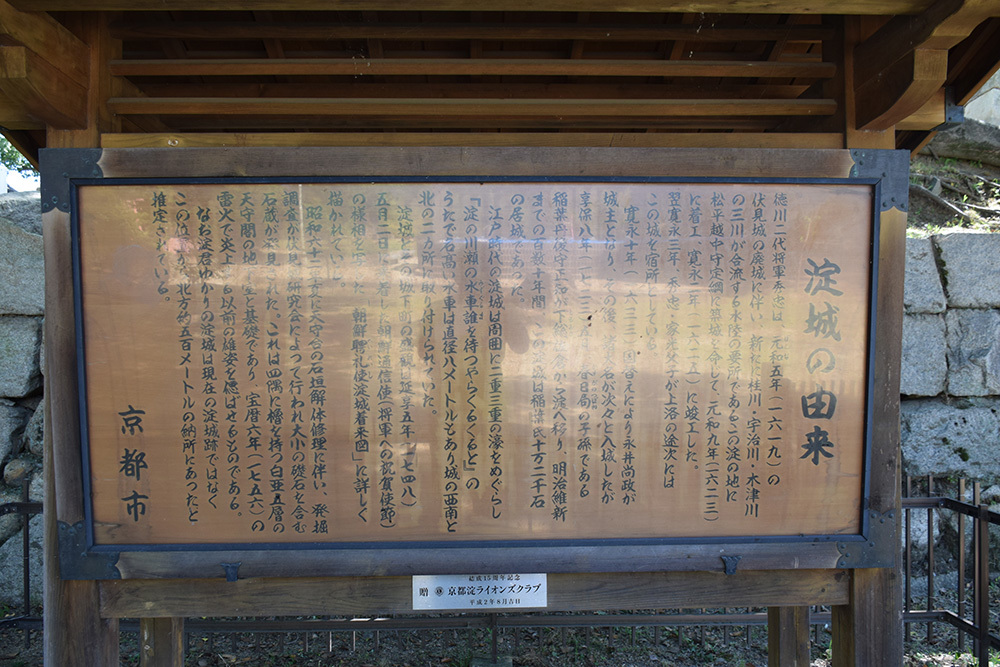 淀城の由来
徳川二代将軍秀忠は、元和五年(一六一九)の
伏見城の廃城に伴い、新たに桂川・宇治川・木津川
の三川が合流する水陸の要所であるこの淀の地に
松平越中守定綱に築城を命じて、元和九年(一六二三)
に着工、寛永二年(一六二五)に竣工した。
翌寛永三年、秀忠・家光父子が上洛の途次には
この城を宿所としている。
寛永十年(一六三三)国替えにより永井尚政が
城主となり、その後、諸大名が次々と入城したが
享保八年(一七二三)五月春日局の子孫である
稲葉丹後守正知が下総佐倉から淀へ移り、明治維新
までの百数十年間、この淀城は稲葉氏十万二千石
の居城であった。
江戸時代の淀城は周囲に二重三重の濠をめぐらし
「淀の川瀬の水車誰を待つやらくるくると」の
うたで名高い水車は直径八メートルもあり城の西南と
北の二カ所に取り付けられていた。
淀城とその城下町の
延享五年(一七四八)
五月二日に
着した朝鮮通信使(将軍への祝賀使節)
の様相を写した「朝鮮聘礼使淀城着来図」に詳しく
描かれている。
昭和六十二年に天守台の石垣解体修理に伴い、発掘
調査が伏見城研究会によって行われ大小の礎石を含む
石蔵が発見された。これは四隅に櫓を持つ白亜五層の
天守閣の地
と基礎であり、宝暦六年(一七五六)の
雷火で炎上する以前の雄姿を偲ばせるものである。
なお、淀君ゆかりの淀城は現在の淀城跡ではなく
この位置から北方約五百メートルの納所にあったと
推定されている。
京都市
結成15周年記念
贈 京都淀ライオンズクラブ
平成2年8月吉日